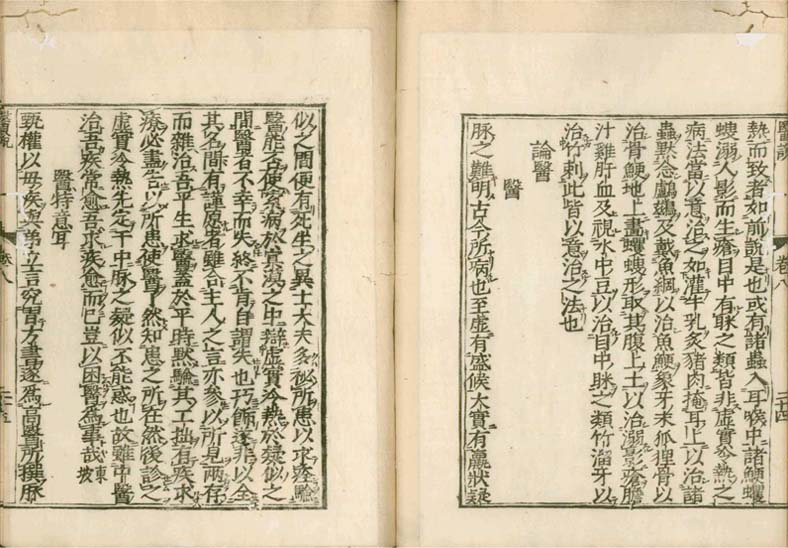 醫說
卷八
三十四
熱而致者如前說是也或有諸蟲入耳喉中諸鯁蠼
螋溺人影而生瘡目中有眯之類皆非虛實冷熱之
病法當以意治之如灌牛乳炙猪肉掩耳上以治諸
蟲默念鸕鷀及戴魚網以治魚鯁象牙末狐狸骨以
治骨鯁地上畫蠼螋形取其腹上土以治溺影瘡膽
汁雞肝血及視水中豆以治目中眯之類竹溜牙以
治竹刺此皆以意治之法也
論醫
醫
脉之難明古今所病也至虛有盛候大實有羸狀疑
似之間便有死生之異士大夫多祕所患以求診驗
醫能否使索病於冥漠之中辯虛實冷熱於疑似之
間醫者不幸而失終不肯自謂失也巧飾遂非以全
其名間有謹愿者雖合主人之言亦參以所見兩存
而雜治吾平生求醫蓋於平時默驗其工拙有疾求
療必盡告以所患使醫了然知患之所在然後診之
虛實冷熱先定于中脉之疑似不能惑也故雖中醫
治吾疾常愈吾求疾愈而已豈以困醫為事哉東坡
醫特意耳
甄權以母疾與弟立言究習方書遂為高醫所撰脉
醫說
卷八
三十五